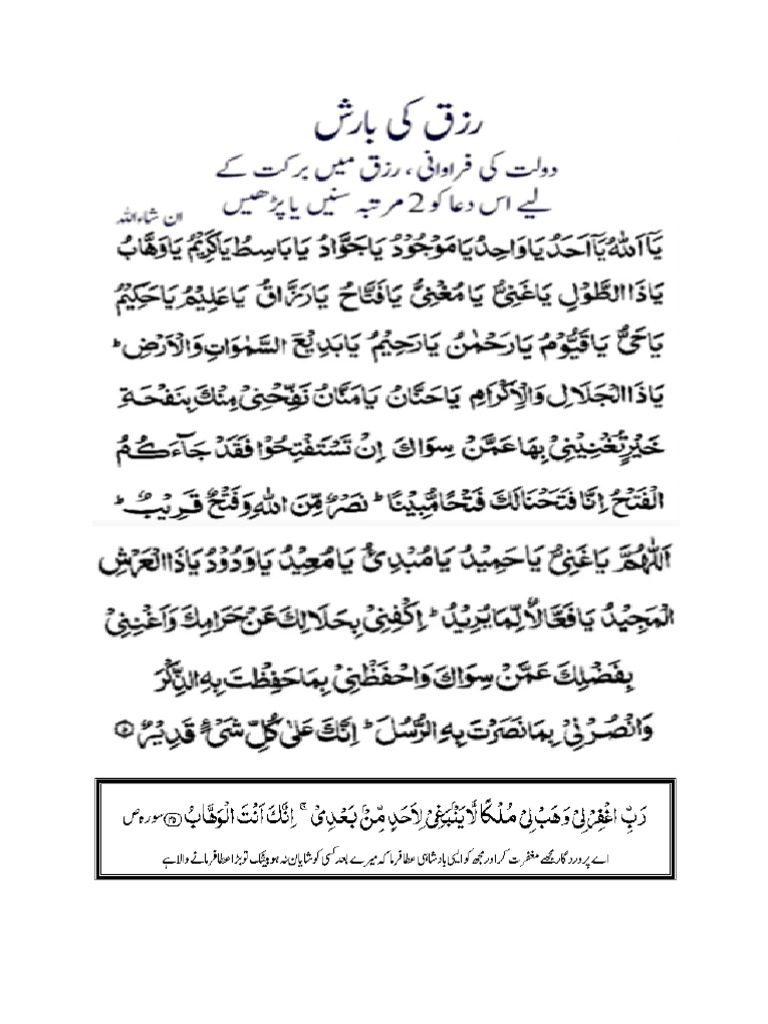 رزق کی بارش
دولت کی فراوانی، رزق میں برکت کے
لیے اس دعا کو 2 مرتبہ سنیں یا پڑھیں ان شاءاللہ
يَآ اَللّٰهُ يَآ اَحَدُ يَا وَاحِدُ يَا مَوْجُوْدُ يَا جَوَّادُ يَا بَاسِطُ يَا كَرِيْمُ يَا وَهَّابُ
يَا ذَا الطَّوْلِ يَا غَنِىُّ يَا مُغْنِىُّ يَا فَتَّاحُ يَا رَزَّاقُ يَا عَلِيْمُ يَا حَكِيْمُ
يَا حَىُّ يَا قَيُّوْمُ يَا رَحْمٰنُ يَا رَحِيْمُ يَا بَدِيْعَ السَّمٰوَاتِ وَالْاَرْضِ ؕ
يَا ذَا الْجَلَالِ وَالْاِكْرَامِ يَا حَنَّانُ يَا مَنَّانُ نَفِّحْنِىْ مِنْكَ بِنَفْحَةِ
خَيْرٍ تُغْنِيْنِىْ بِهَا عَمَّنْ سِوَاكَ اِنْ تَسْتَفْتِحُوْا فَقَدْ جَآءَكُمُ
الْفَتْحُ اِنَّا فَتَحْنَا لَكَ فَتْحًا مُّبِيْنًا ؕ نَصْرٌ مِّنَ اللهِ وَفَتْحٌ قَرِيْبٌ ؕ
اَللّٰهُمَّ يَا غَنِىُّ يَا حَمِيْدُ يَا مُبْدِئُ يَا مُعِيْدُ يَا وَدُوْدُ يَا ذَا الْعَرْشِ
الْمَجِيْدُ يَا فَعَّالًا لِّمَا يُرِيْدُ ؕ اِكْفِنِىْ بِحَلَالِكَ عَنْ حَرَامِكَ وَاَغْنِنِىْ
بِفَضْلِكَ عَمَّنْ سِوَاكَ وَاحْفَظْنِىْ بِمَا حَفِظْتَ بِهِ الذِّكْرَ
وَانْصُرْنِىْ بِمَا نَصَرْتَ بِهِ الرُّسُلَ ؕ اِنَّكَ عَلٰى كُلِّ شَىْءٍ قَدِيْرٌ
رَبِّ اغْفِرْ لِىْ وَهَبْ لِىْ مُلْكًا لَّا يَنْۢبَغِىْ لِاَحَدٍ مِّنْۢ بَعْدِىْ ۚ اِنَّكَ اَنْتَ الْوَهَّابُ ﴿۳۵﴾ سورہ ص
اے پروردگار مجھے مغفرت کر اور مجھ کو ایسی بادشاہی عطا فرما کہ میرے بعد کسی کو شایان نہ ہو بیشک تو بڑا عطا فرمانے والا ہے